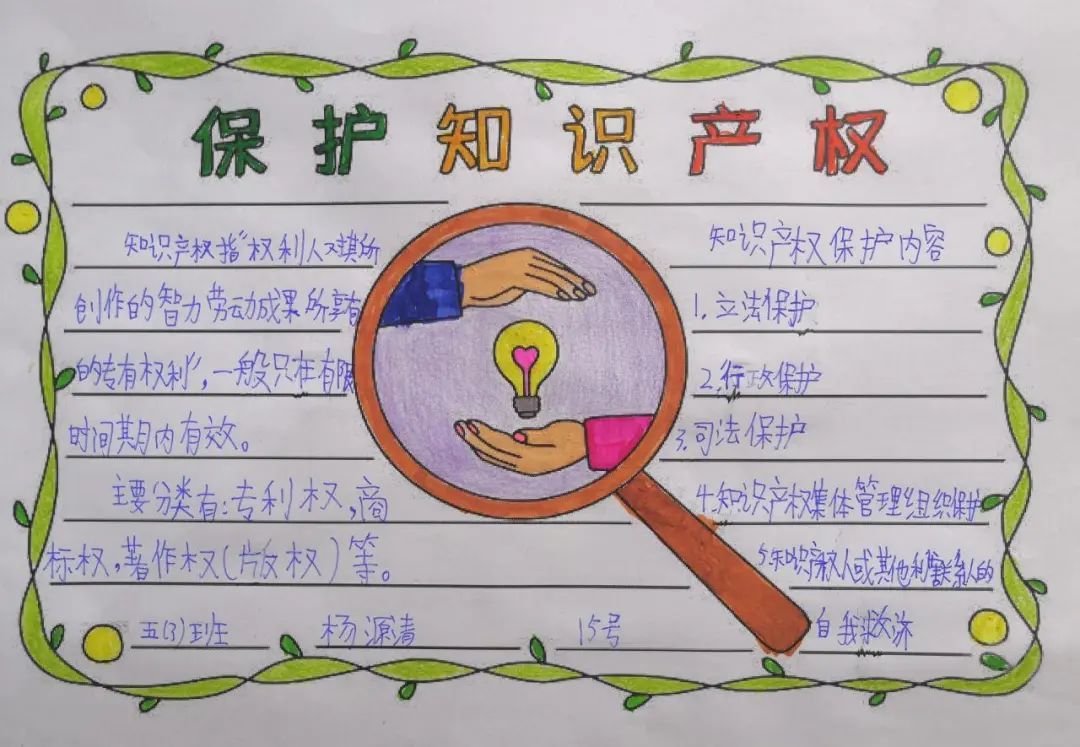 保护知识产权
知识产权指“权利人对其所
创作的智力劳动成果所享有
的专有权利”，一般只在有限
时间期内有效。
主要分类有：专利权，商
标权，著作权(版权)等。
知识产权保护内容
1.立法保护
2.行政保护
3.司法保护
4.知识产权集体管理组织保护
5.知识产权人或其他利害关系人的
自我救济
五(3)班 杨源清 15号